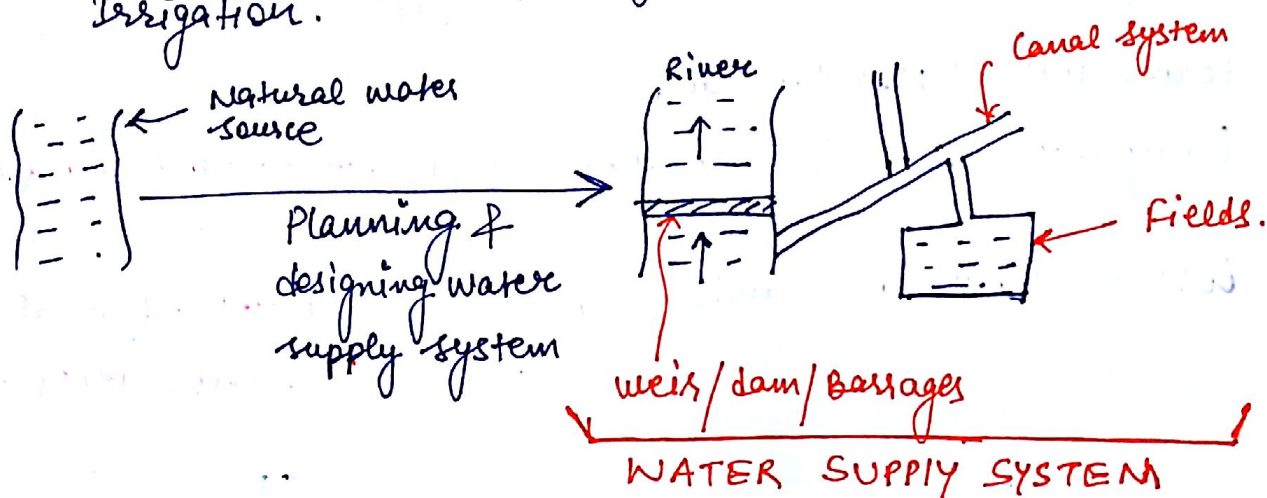 Irrigation.
Natural water
source
Planning &
designing water
supply system
River
Canal system
Fields.
weir/dam/Barrages
WATER SUPPLY SYSTEM